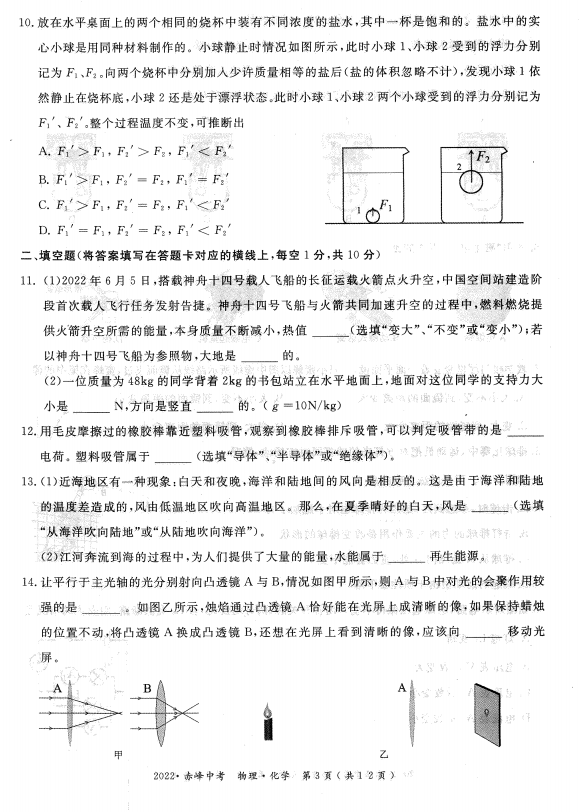 10. 放在水平桌面上的两个相同的烧杯中装有不同浓度的盐水,其中一杯是饱和的。盐水中的实
心小球是用同种材料制作的。小球静止时情况如图所示,此时小球 1、小球 2 受到的浮力分别
记为 F₁、F₂。向两个烧杯中分别加入少许质量相等的盐后(盐的体积忽略不计),发现小球 1 依
然静止在烧杯底,小球 2 还是处于漂浮状态。此时小球 1、小球 2 两个小球受到的浮力分别记为
F₁′、F₂′。整个过程温度不变,可推断出
A. F₁′>F₁, F₂′>F₂, F₁′<F₂′
B. F₁′>F₁, F₂′=F₂, F₁′=F₂′
C. F₁′>F₁, F₂′=F₂, F₁′<F₂′
D. F₁′=F₁, F₂′=F₂, F₁′<F₂′
1 F₁
2 F₂
二、填空题(将答案填写在答题卡对应的横线上,每空 1 分,共 10 分)
11. (1)2022 年 6 月 5 日,搭载神舟十四号载人飞船的长征运载火箭点火升空,中国空间站建造阶
段首次载人飞行任务发射告捷。神舟十四号飞船与火箭共同加速升空的过程中,燃料燃烧提
供火箭升空所需的能量,本身质量不断减小,热值 ______(选填“变大”、“不变”或“变小”);若
以神舟十四号飞船为参照物,大地是 ______ 的。
(2)一位质量为 48kg 的同学背着 2kg 的书包站立在水平地面上,地面对这位同学的支持力大
小是 ______ N,方向是竖直 ______ 的。( g =10N/kg)
12. 用毛皮摩擦过的橡胶棒靠近塑料吸管,观察到橡胶棒排斥吸管,可以判定吸管带的是 ______
电荷。塑料吸管属于 ______ (选填“导体”、“半导体”或“绝缘体”)。
13. (1)近海地区有一种现象:白天和夜晚,海洋和陆地间的风向是相反的。这是由于海洋和陆地
的温度差造成的,风由低温地区吹向高温地区。那么,在夏季晴好的白天,风是 ______ (选填
“从海洋吹向陆地”或“从陆地吹向海洋”)。
(2)江河奔流到海的过程中,为人们提供了大量的能量,水能属于 ______ 再生能源。
14. 让平行于主光轴的光分别射向凸透镜 A 与 B,情况如图甲所示,则 A 与 B 中对光的会聚作用较
强的是 ______ 。如图乙所示,烛焰通过凸透镜 A 恰好能在光屏上成清晰的像,如果保持蜡烛
的位置不动,将凸透镜 A 换成凸透镜 B,还想在光屏上看到清晰的像,应该向 ______ 移动光
屏。
A B A
甲 乙
2022·赤峰中考 物理·化学 第 3 页 ( 共 1 2 页 )